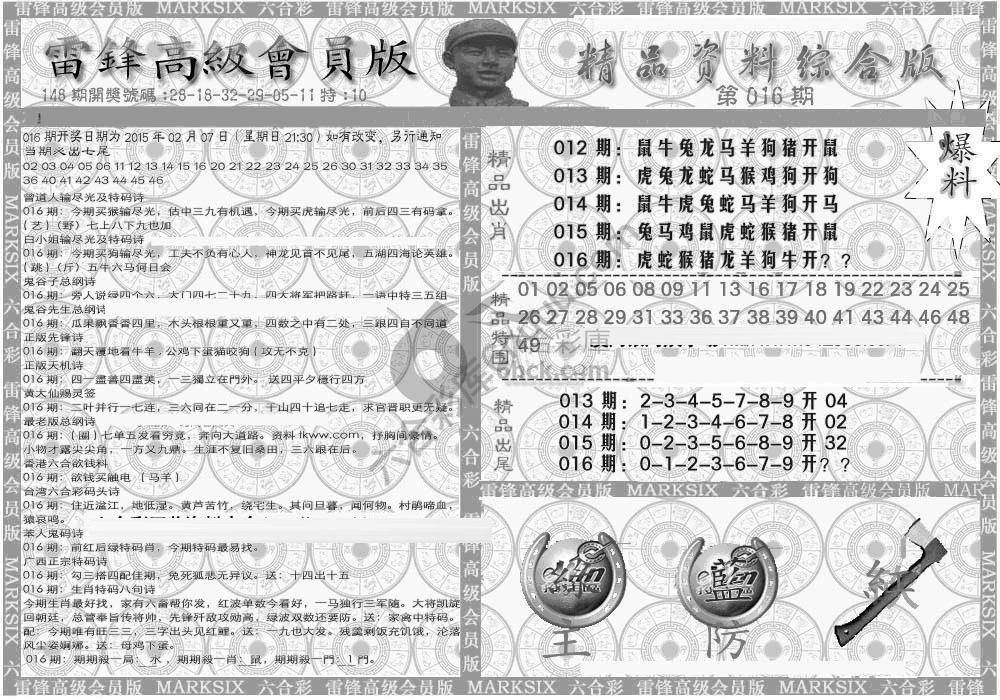 雷锋高级会员版 MARKSIX 六合彩 雷锋高级会员版 MARKSIX 六合彩 雷锋高级会员版 MARKSIX 六合彩 雷锋
雷鋒高級會員版
精品资料综合版
148期開獎號碼:28-18-32-29-05-11特:10
第016期
爆料
016期开奖日期为2015年02月07日(星期日21:30)如有改变,另行通知
当期必出七尾
02 03 04 05 06 11 12 13 14 15 16 20 21 22 23 24 25 26 30 31 32 33 34 35
36 40 41 42 43 44 45 46
曾道人输尽光及特码诗
016期:今期买猴输尽光,估中三九有机遇,今期买虎输尽光,前后四三有码拿。
{艺}(野)七上八下九也加
白小姐输尽光及特码诗
016期:今期买狗输尽光,工夫不负有心人,神龙见首不见尾,五湖四海论英雄。
{跳}(斤)五牛六马何日会
鬼谷子总纲诗
016期:旁人说绿四个六,大门四七二十九,四大将军把路赶,一语中特三五组
鬼谷先生总纲诗
016期:瓜果飘香香四里,木头根根重又重,四数之中有二处,三跟四自不同道
正版先锋诗
016期:翻天覆地看牛羊.公鸡下蛋猫咬狗{攻无不克}
正版天机诗
016期:四一盡善四盡美,一三獨立在門外。送四平夕穩行四方
黄大仙赐灵签
016期:二叶并行一七连,三六同在二一分,千山四十追七走,求官晋职更无疑。
最老版总纲诗
016期:{圈}七单五发看穷竟,奔向大道路。资料tkww.com,抒胸间豪情。
小物才露尖尖角,一方又九鼎。生涯不复旧桑田,三六跟在后。
香港六合欲钱料
016期:欲钱买融电 {马羊}
台湾六合彩码头诗
016期:住近湓江,地低湿。黄芦苦竹,绕宅生。其问旦暮,闻何物。村鹃啼血,
猿哀鸣。
苯人鬼码诗
016期:前红后绿特码肖,今期特码最易找。
广西正宗特码诗
016期:勾三搭四配佳期,兔死狐悲无异议。送:十四出十五
016期:生肖特码八句诗
今期生肖最好找,家有六畜帮你发,红波单数今看好,一马独行三军随。大将凯旋
回朝廷,总管奉旨传将帅,先锋歼敌攻勋高,绿波双数还要防。送:家禽中特码。
配:今期唯有旺三三,三字出头见红鲤。送:一九也大发。残羹剩饭充饥饿,沦落
风尘姿婀娜。送:母鸡下蛋。
016期:期期殺一局:水,期期殺一肖:鼠,期期殺一門:1門。
精品出肖
012期:鼠牛兔龙马羊狗猪开鼠
013期:虎兔龙蛇马猴鸡狗开狗
014期:鼠牛虎兔蛇马羊狗开马
015期:兔马鸡鼠虎蛇猴猪开鼠
016期:虎蛇猴猪龙羊狗牛开??
精品特围
01 02 05 06 08 09 11 13 16 17 18 19 22 23 24 25
26 27 28 29 31 33 36 37 38 39 40 41 43 44 46 48
49
精品出尾
013期:2-3-4-5-7-8-9开04
014期:1-2-3-4-6-7-8开02
015期:0-2-3-5-6-8-9开32
016期:0-1-2-3-6-7-9开??
雷锋高级会员版 MARKSIX 六合彩 雷锋高级会员版
主
防
藍
紅
雷锋高级会员版 MARKSIX 六合彩 雷锋高级会员版 MARKSIX 六合彩 雷锋高级会员版 MARKSIX 六合彩 雷锋